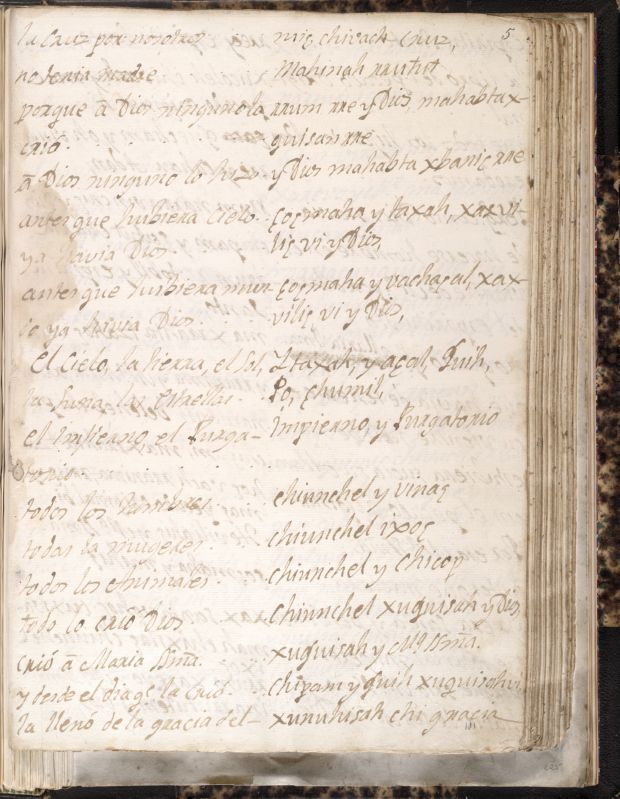 5
la Cruz por nosotros miç chivach Cruz,
no tenia madre Mahinah rrutut
porque â Dios ninguno la rrum rre y Dios, mahabtax-
crió. quisan rre
â Dios ninguno lo hizo y Dios mahabta xbaniç rre
antes que hubiera Cielo. Coçmaha y taxah, xaxvi-
ya havia Dios. liç vi y Dios,
antes que hubiera mun- Coçmaha y vachacal, xax-
ya havia Dios. viliç vi y Dios,
El Cielo, la tierra, el Sol, I taxah, y açal, Quih,
la Luna, las Estrellas. Po, chumil,
el Infierno, el Purga- Impierno, y Purgatorio
torio
todos los hombres chiunchel y vinaç
todas la mugeres chiunchel ixoç
todos los Animales chiunchel y chicop
todo lo crió Dios Chiunchel xuquisah y Dios,
crió â Maria Sma. xuquisah y Mª Sma.
y desde el dia q̃ la crió. chipam y quih xuquisahvi,
la llenó de la gracia del- xunuhisah chi gracia